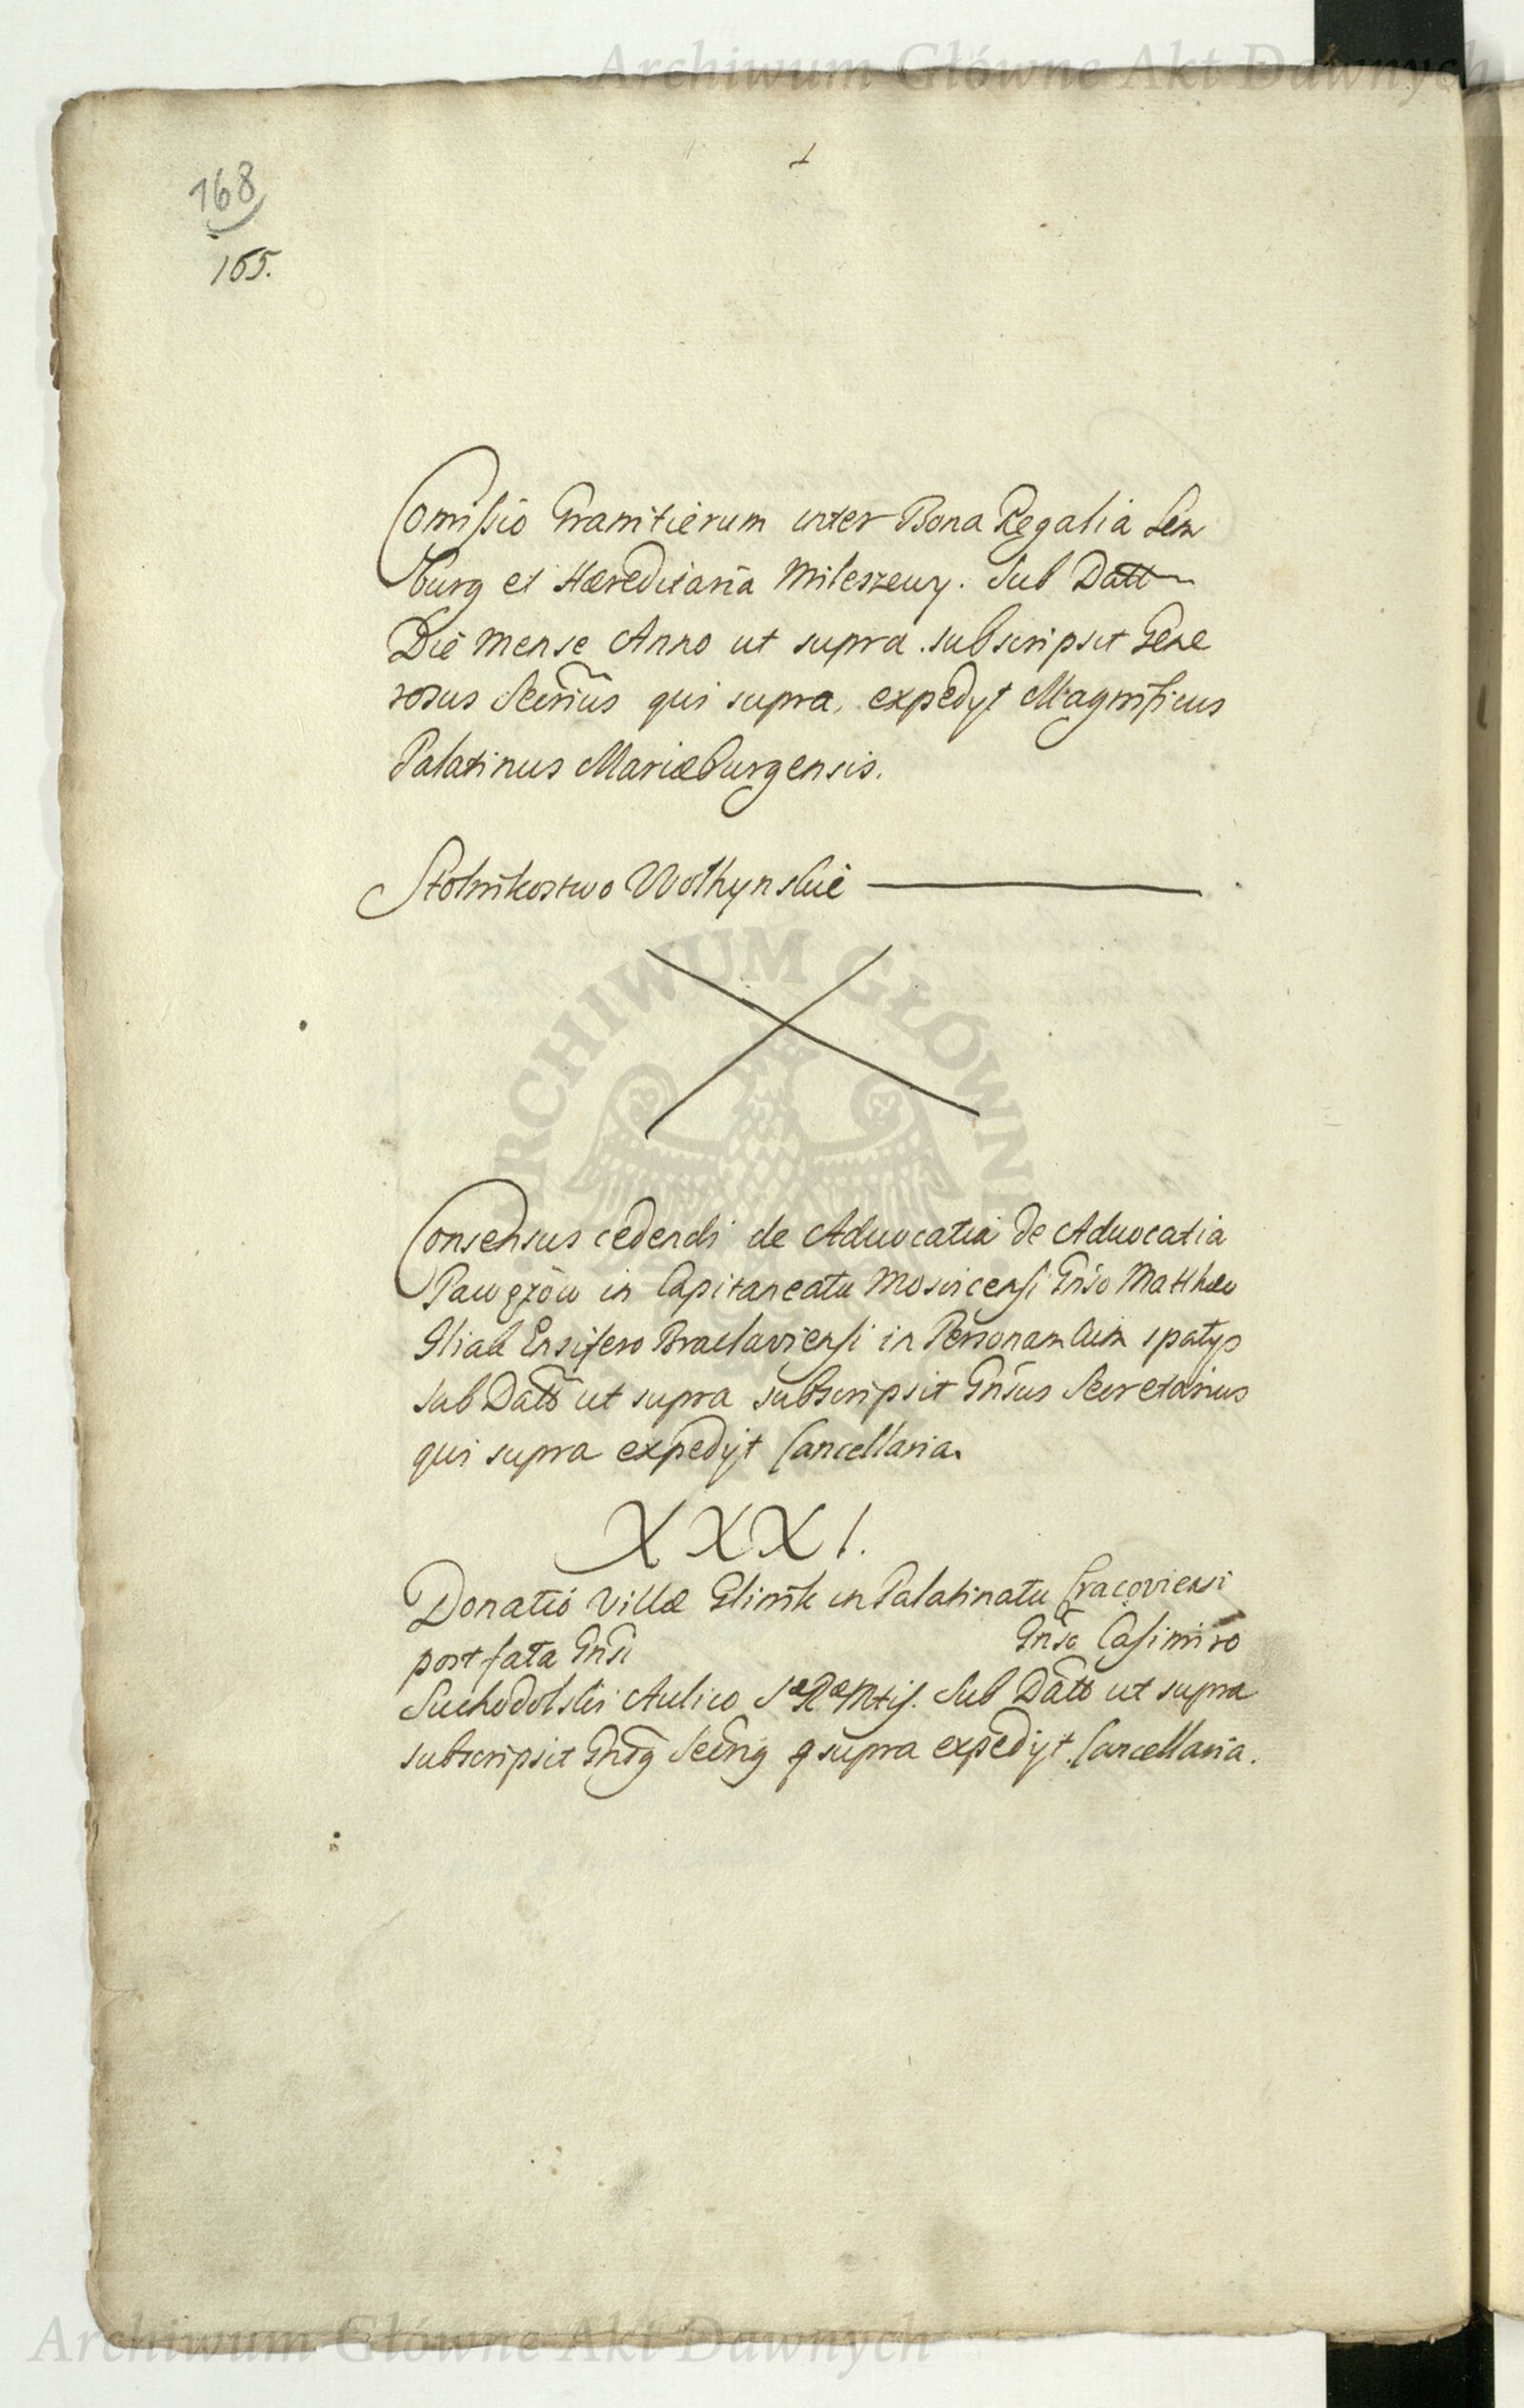 Archiwum Główne Akt Dawnych
168
165.
Comissio Granitierum inter Bona Regalia Lem
burg et Hæreditaria Mileszewy. Sub Datt
Die Mense Anno ut supra subscripsit Gene
rosus Secrius qui supra, expedyt Magnificus
Palatinus Mariæburgensis.
Stolnikostwo Wołhynskie
ARCHIWUM GŁÓWNE
Consensus cedendi de Aduocatia de Aduocatia
in Capitaneatu Moscicensi Gnso Matthæo
Gliab Ensifero Braclaviensi in Personam
Sub Datto ut supra subscripsit Gnsus Secretarius
qui supra expedijt Cancellaria.
XXXI.
Donatio Villæ Glinik in Palatinatu Cracoviensi
post fata Gnsi Gnso Casimiro
Suchodolski Aulico SæRæMtis. Sub Datto ut supra
subscripsit supra expedijt Cancellaria.
Archiwum Główne Akt Dawnych